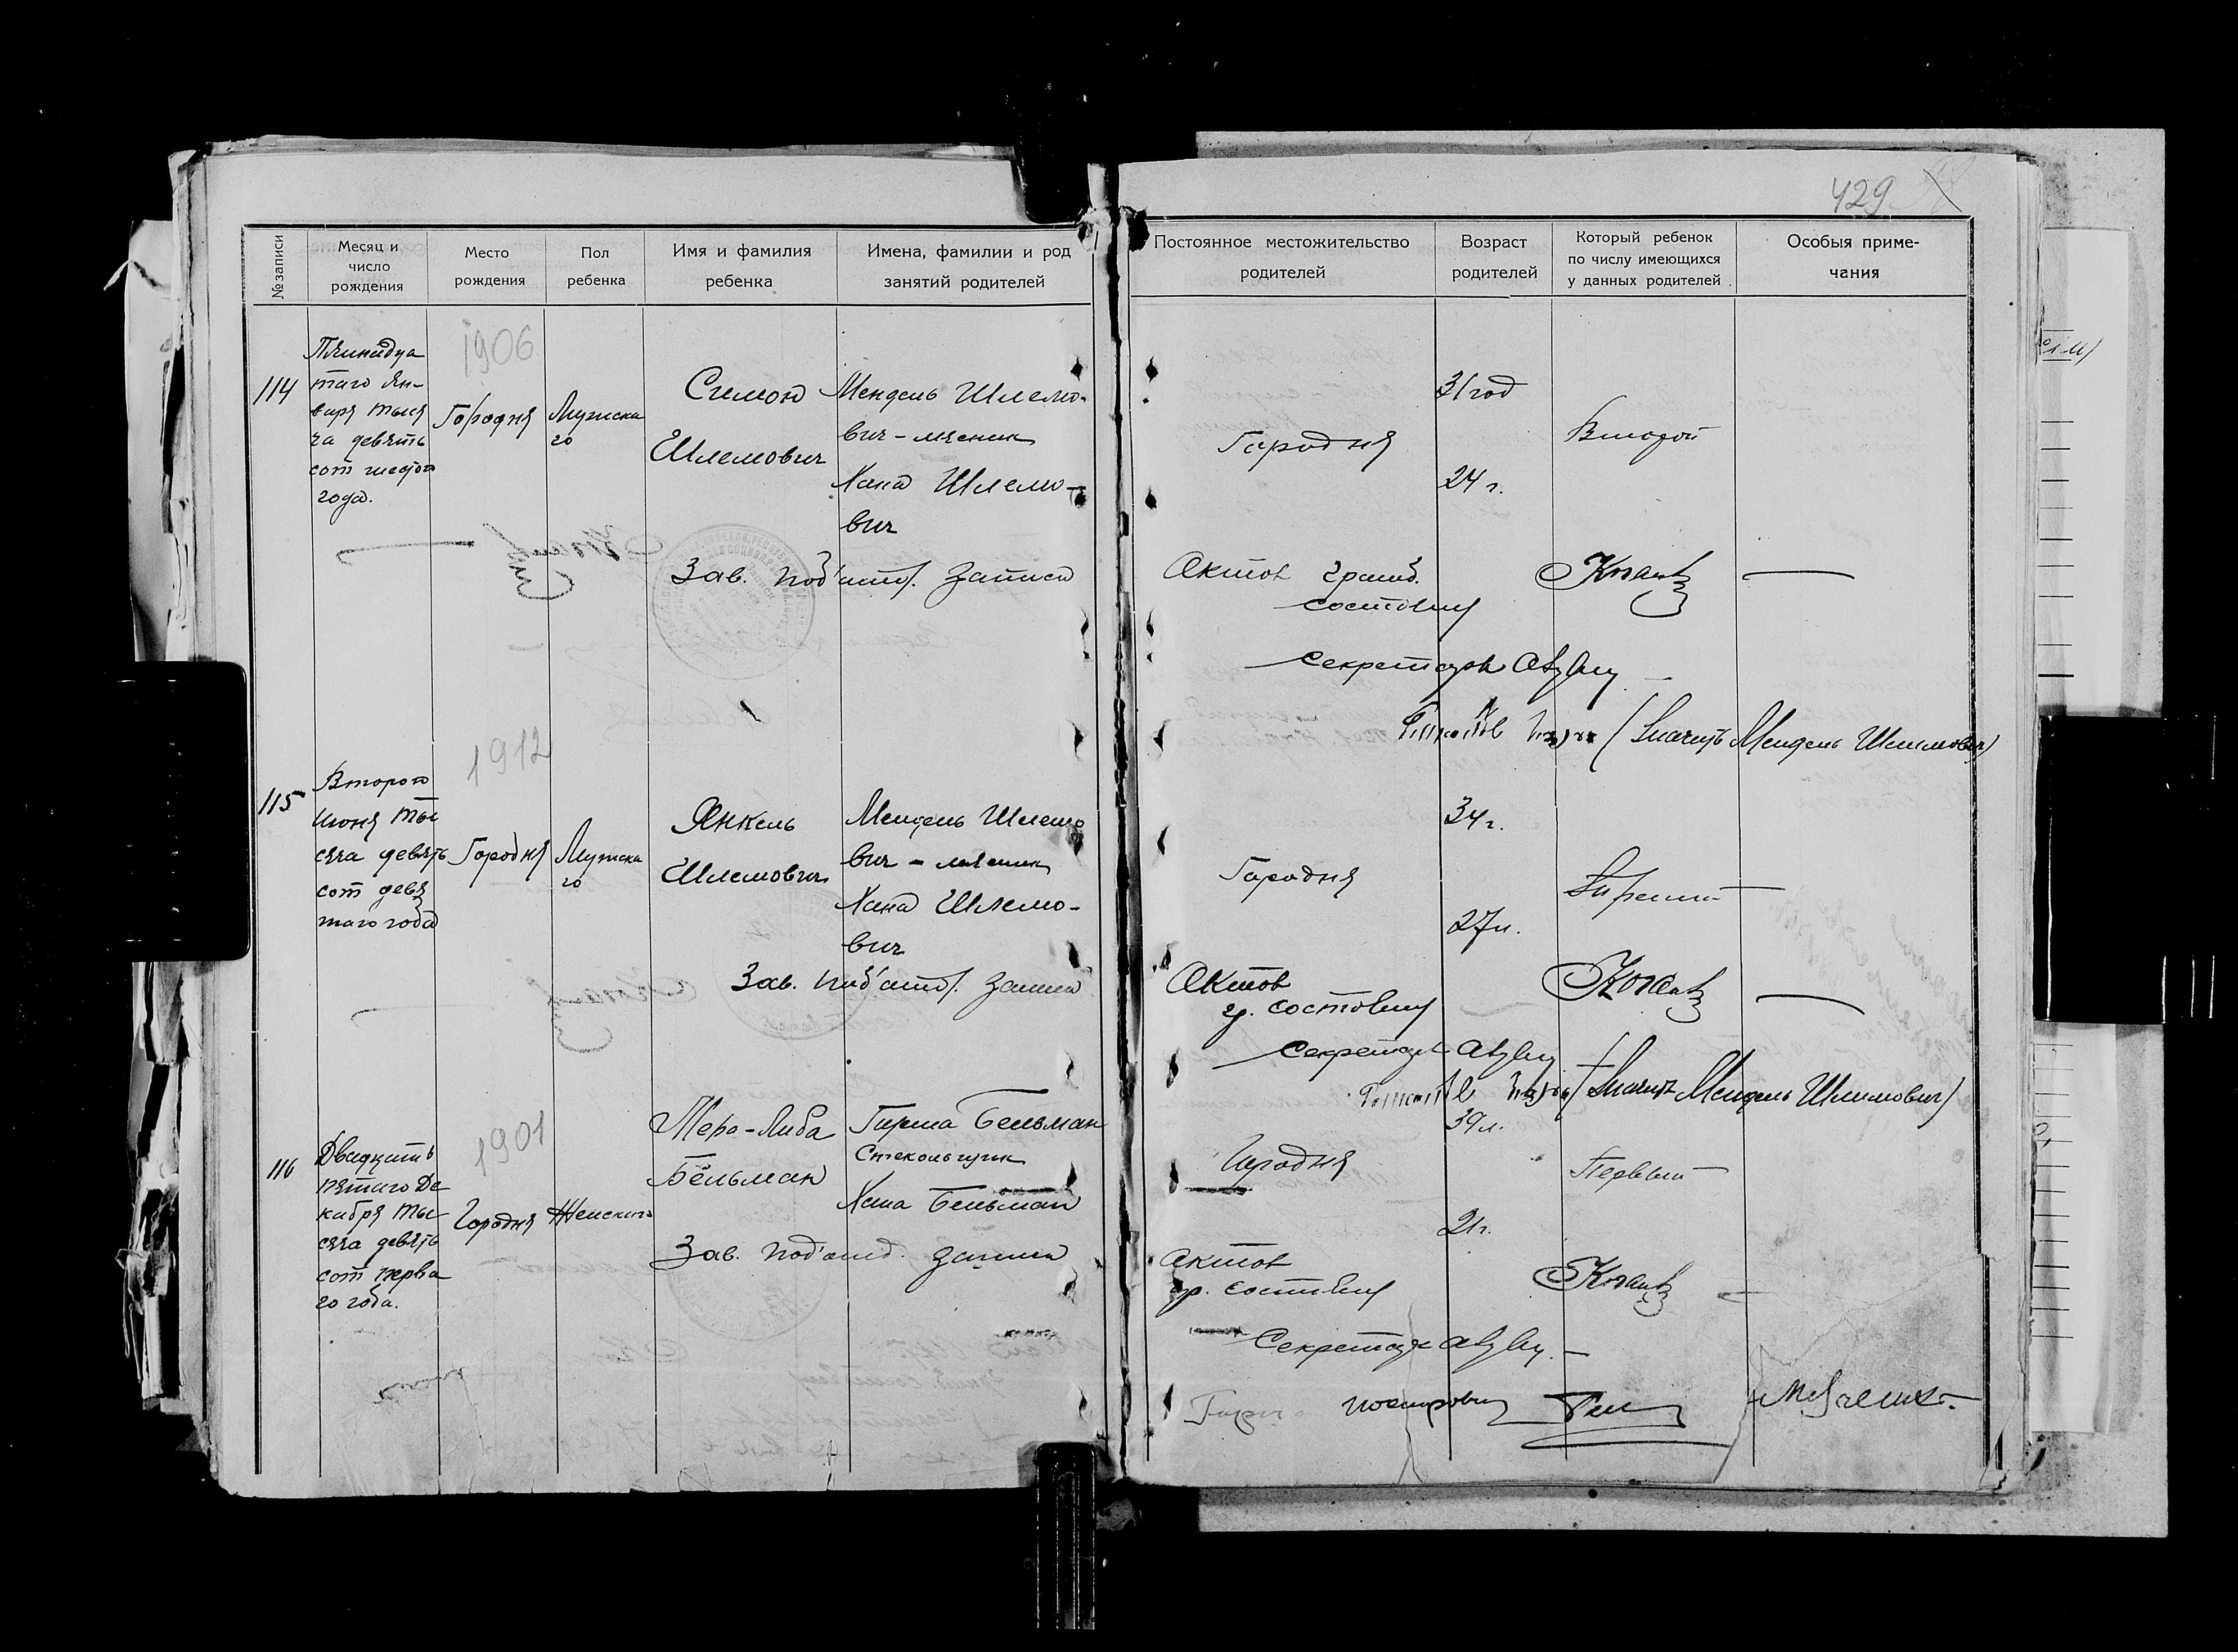 429
№ записи
Месяц и число рождения
Место рождения
Пол ребенка
Имя и фамилия ребенка
Имена, фамилии и род занятий родителей
Постоянное местожительство родителей
Возраст родителей
Который ребенок по числу имеющихся у данных родителей
Особыя примечания
114
таго Ян-
варя тыся
ча девять
сот шестого
года.
1906
Городня
Мужска
го
Шлемович
Мендель Шлемо-
вич - мясник
Хана Шлемо-
вич
Городня
31 год
24 г.
Второй
Зав. под'отд. записи
Актов гражд.
состояния
Секретарь
(Значит Мендель Шлемович)
115
Второго
июня ты
сяча девять
сот девя
таго года
1912
Городня
Мужска
го
Янкель
Шлемович
Мендель Шлемо
вич - мясник
Хана Шлемо-
вич
Городня
34 г.
27 л.
Зав. под'отд. записи
Актов
гр. состояния
Секретарь
(Значит Мендель Шлемович)
116
Двадцать
пятаго Де
кабря ты
сяча девять
сот перва
го года.
1901
Городня
Женскаго
Бельман
Гирша Бельман
Стекольщик
Хана Бельман
Городня
39 л.
21 г.
Первый
Зав. под'отд. записи
Актов
гр. состояния
Секретарь